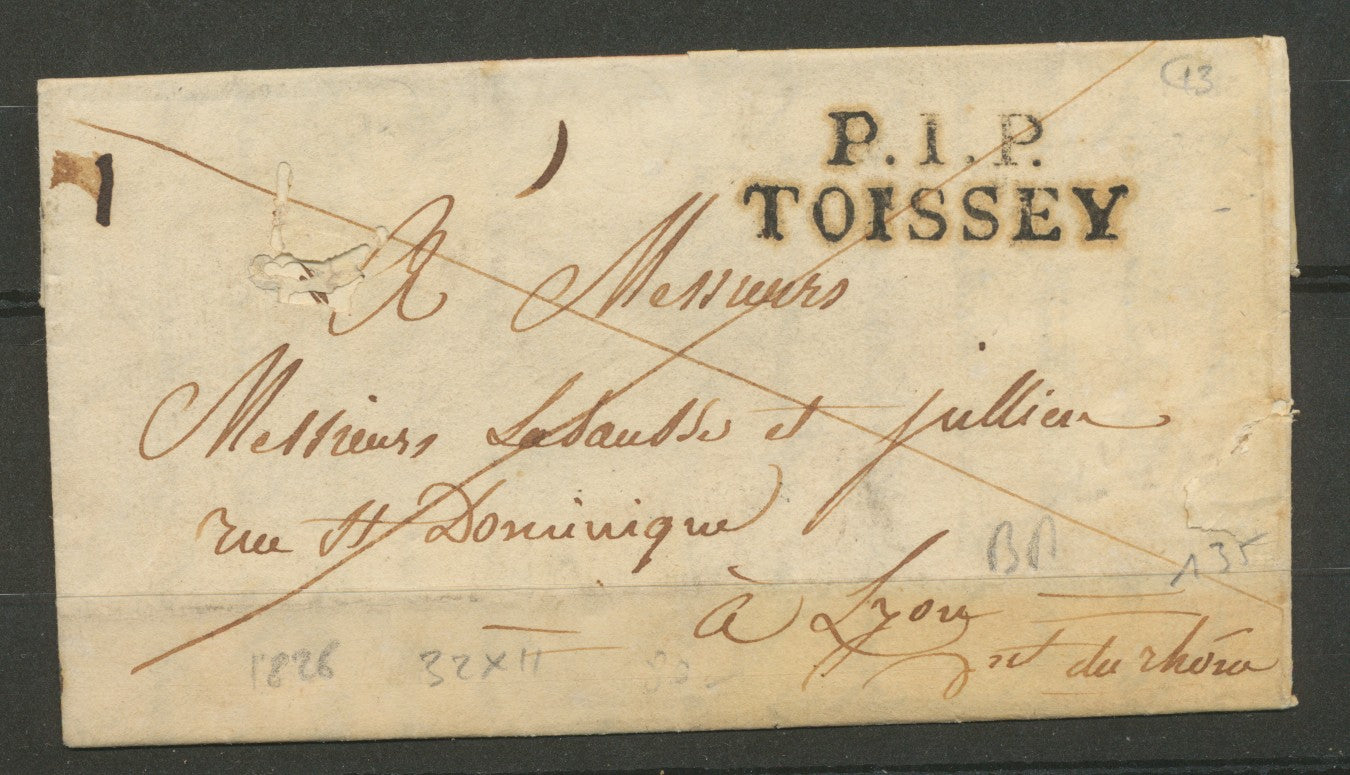 13
P.1.P.
TOISSEY
A Messieurs
Messieurs Labausse et Jullien
rue St Dominique
BA
135
à Lyon
nt du rhône
1826 32x11